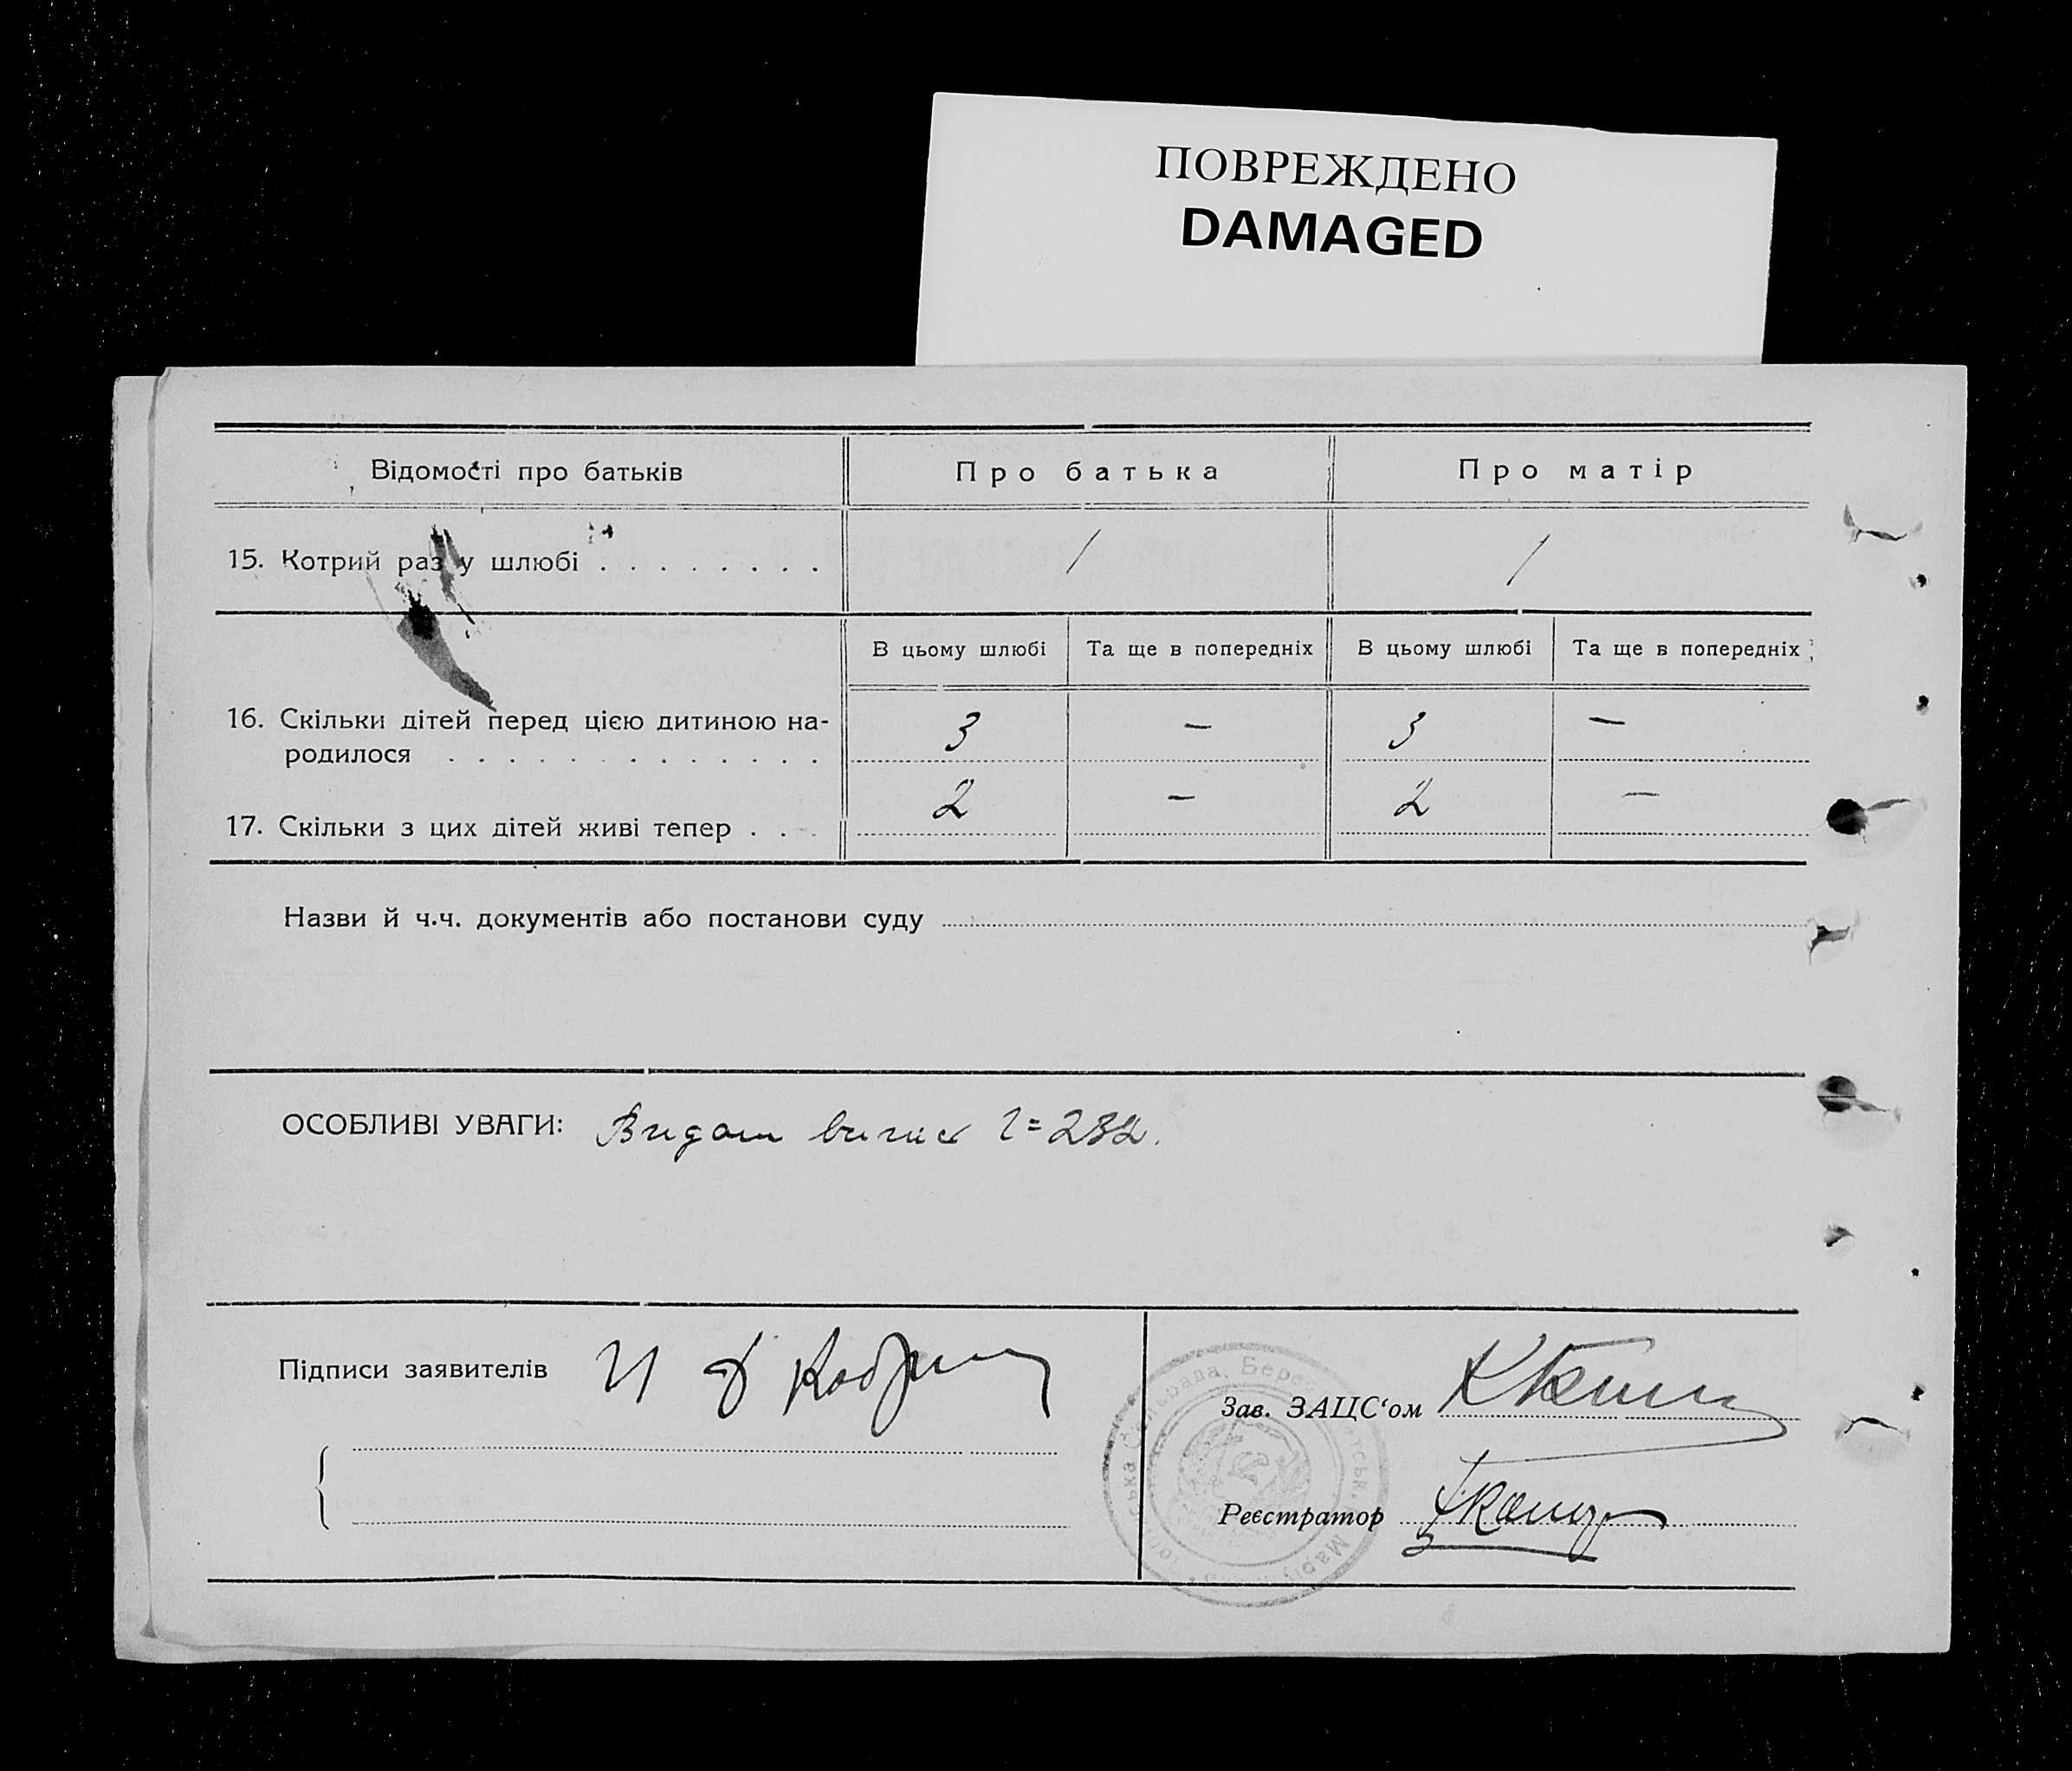 ПОВРЕЖДЕНО
DAMAGED
Відомості про батьків Про батька Про матір
15. Котрий раз у шлюбі . . . . . . . . / /
В цьому шлюбі Та ще в попередніх В цьому шлюбі Та ще в попередніх
16. Скільки дітей перед цією дитиною на-
родилося . . . . . . . . . . . . . 3 — 3 —
17. Скільки з цих дітей живі тепер . . . 2 — 2 —
Назви й ч.ч. документів або постанови суду
ОСОБЛИВІ УВАГИ: Видан
Підписи заявителів
Зав. ЗАЦС‘ом
Реєстратор